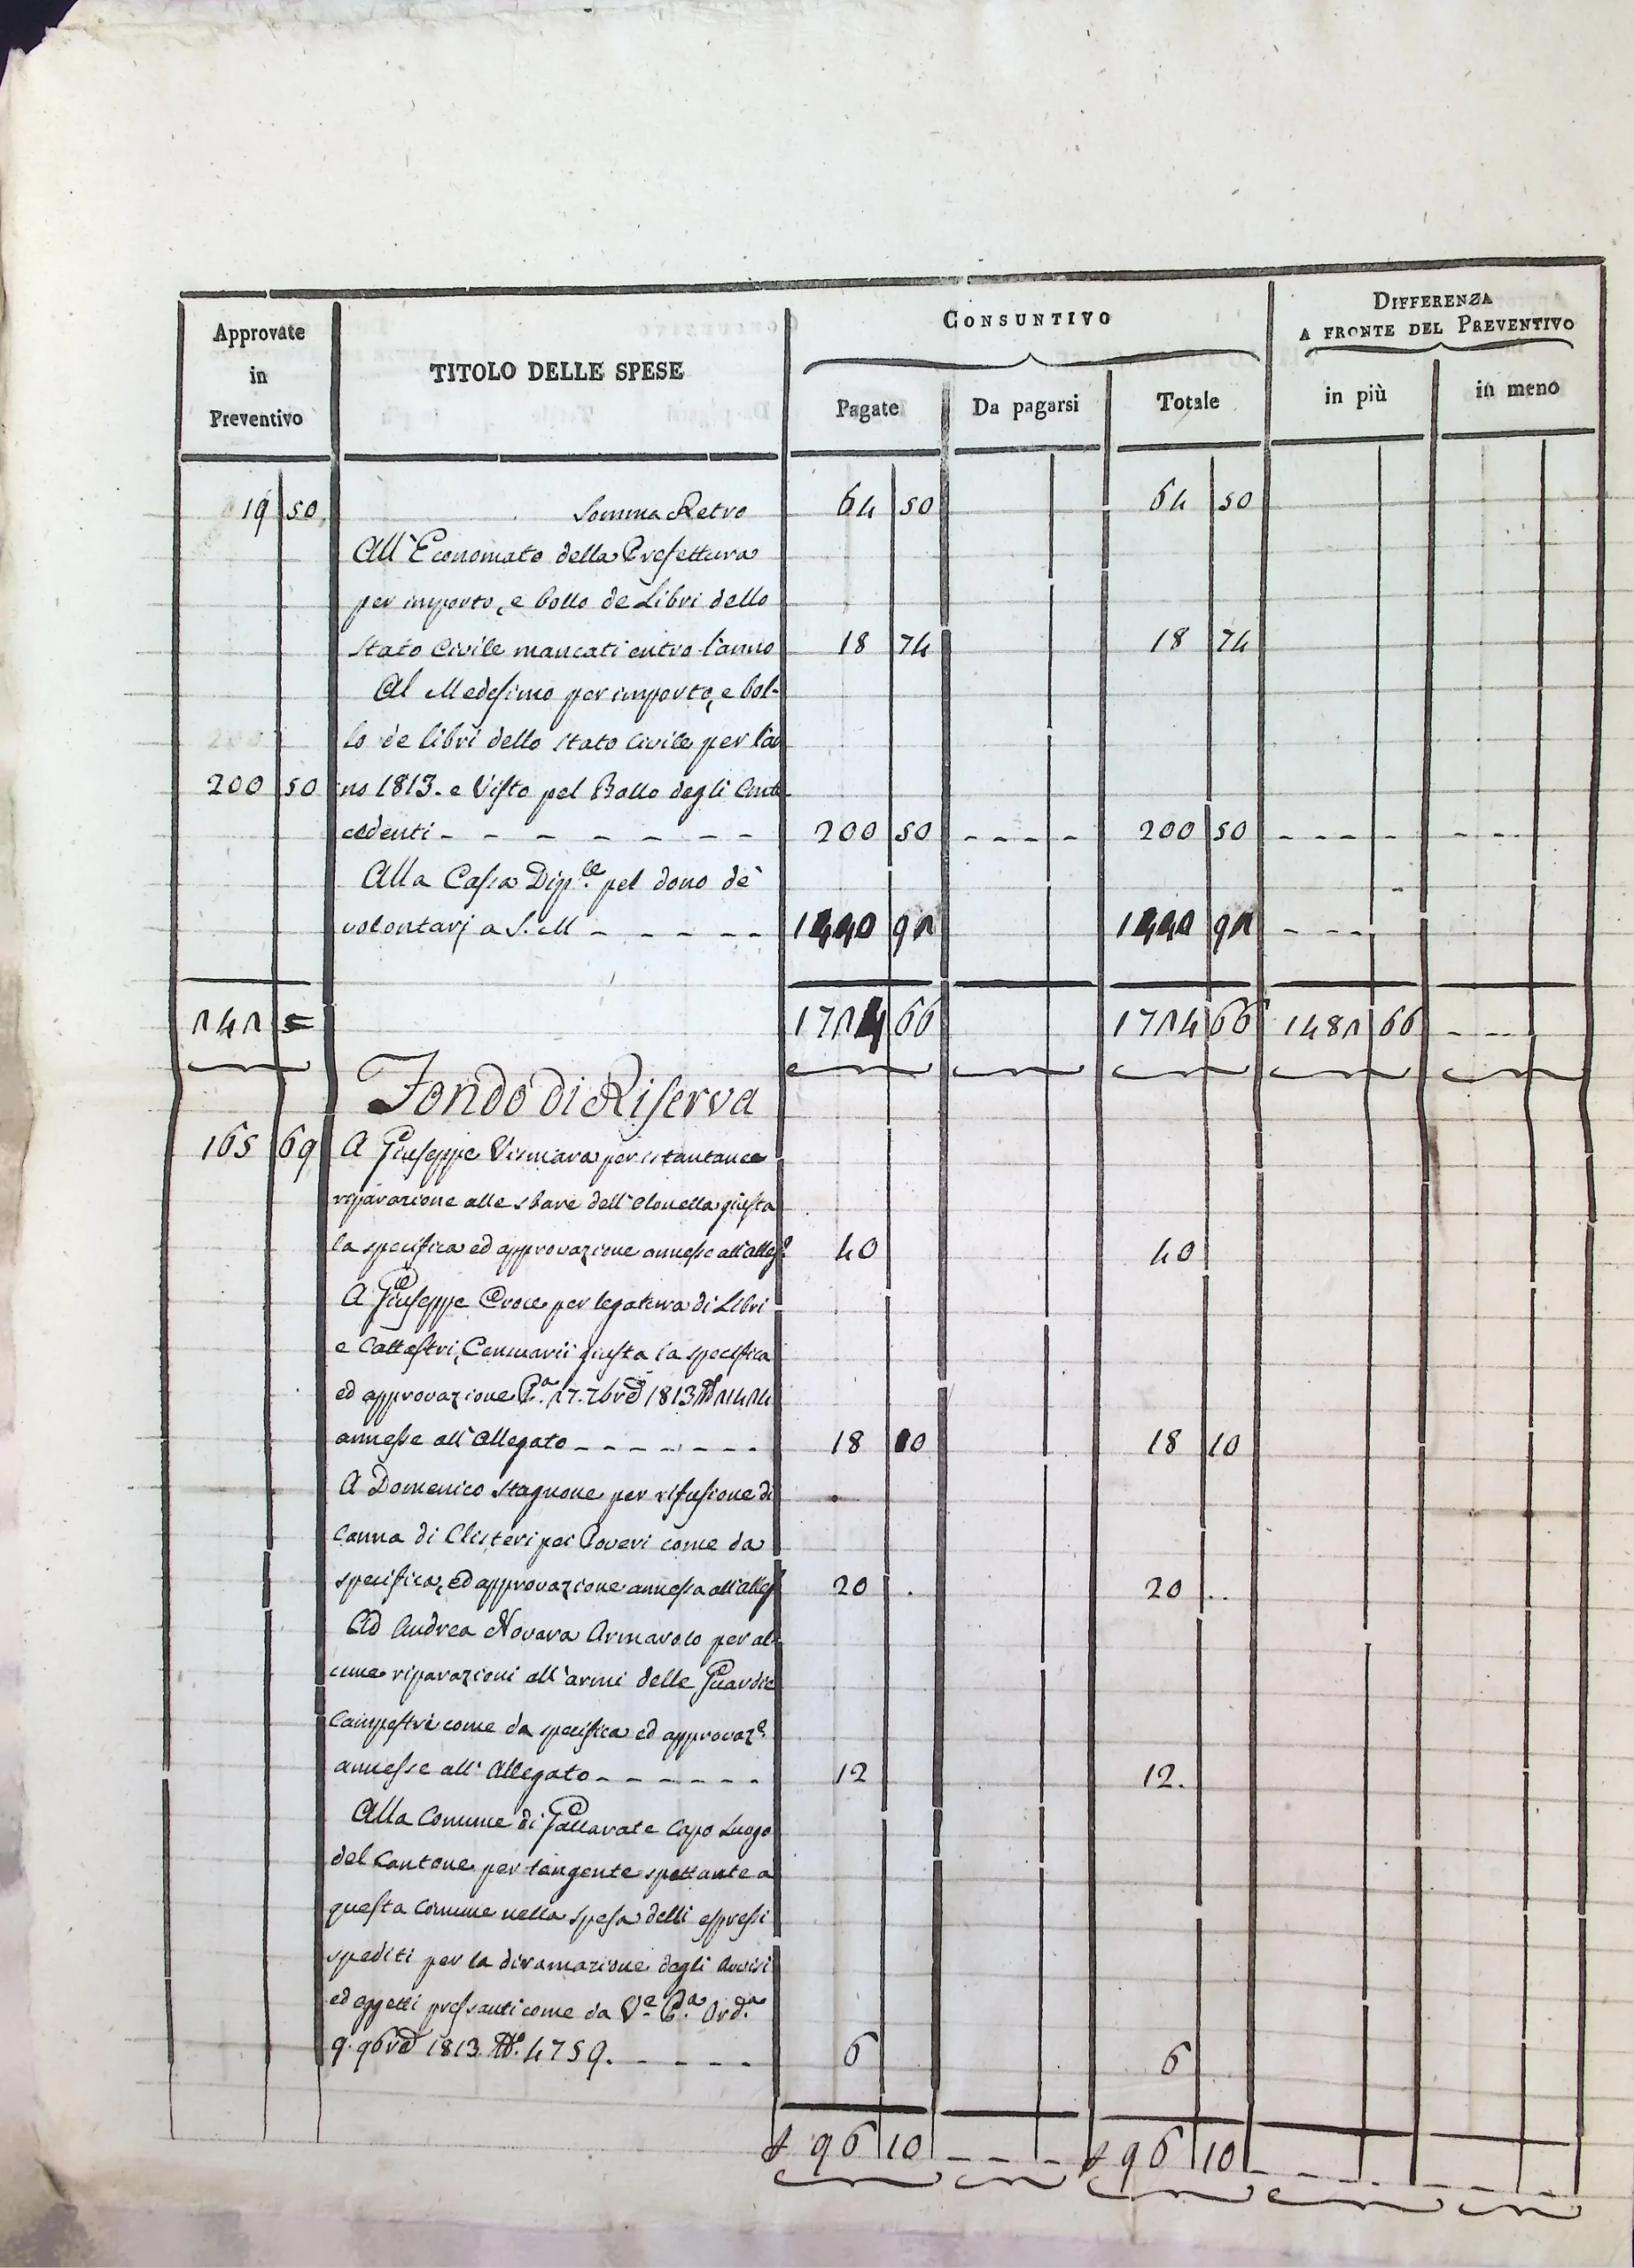 Approvate in Preventivo
TITOLO DELLE SPESE
CONSUNTIVO
Pagate
Da pagarsi
Totale
DIFFERENZA
A FRONTE DEL PREVENTIVO
in più
in meno
19 50 Somma Retro 64 50 64 50
All'Economato della Prefettura
per importo, e bollo de Libri dello
Stato Civile mancati entro l'anno 18 74 18 74
Al Medesimo per importo, e bol-
lo de libri dello Stato Civile per l'an
200 50 no 1813. e Visto pel Bollo degli Ante
cedenti - - - - - - - 200 50 - - - - 200 50 - - - - - - - -
Alla Cassa Dip.le pel dono de
volontarj a S. M - - - - - 1440 92 1440 92 - - - -
242 5 1724 66 1724 66 1482 66 - - - -
Fondo di Riserva
165 69 A Giuseppe Vismara per istantanee
riparazione alle sbare dell'Olonella giusta
la specifica ed approvazione annesse all'alleg.o 40 40
A Giuseppe Croce per legatura di Libri
e Cattastri, Censuarii giusta la specifica
ed approvazione P.a 27. 7bre 1813 N.o 2424
annesse all'Allegato - - - - - - - 18 10 18 10
A Domenico Stagnone per rifusione di
Canna di Clisteri pei Poveri come da
specifica, ed approvazione annessa all'alleg.o 20 . 20 ..
Ad Andrea Novara Armarolo per al-
cune riparazioni all'armi delle Guardie
Campestri come da specifica ed approvaz.e
annesse all'Allegato - - - - - - 12 12.
Alla Comune di Gallarate Capo Luogo
del Cantone per tangente spettante a
questa Comune nella spesa delli espressi
spediti per la diramazione degli Avvisi
ed oggetti pressanti come da V.e P.a Ord.a
9. 9bre 1813 N.o 4759. - - - - 6 6
96 10 - - - - 96 10 - - - - - - - -